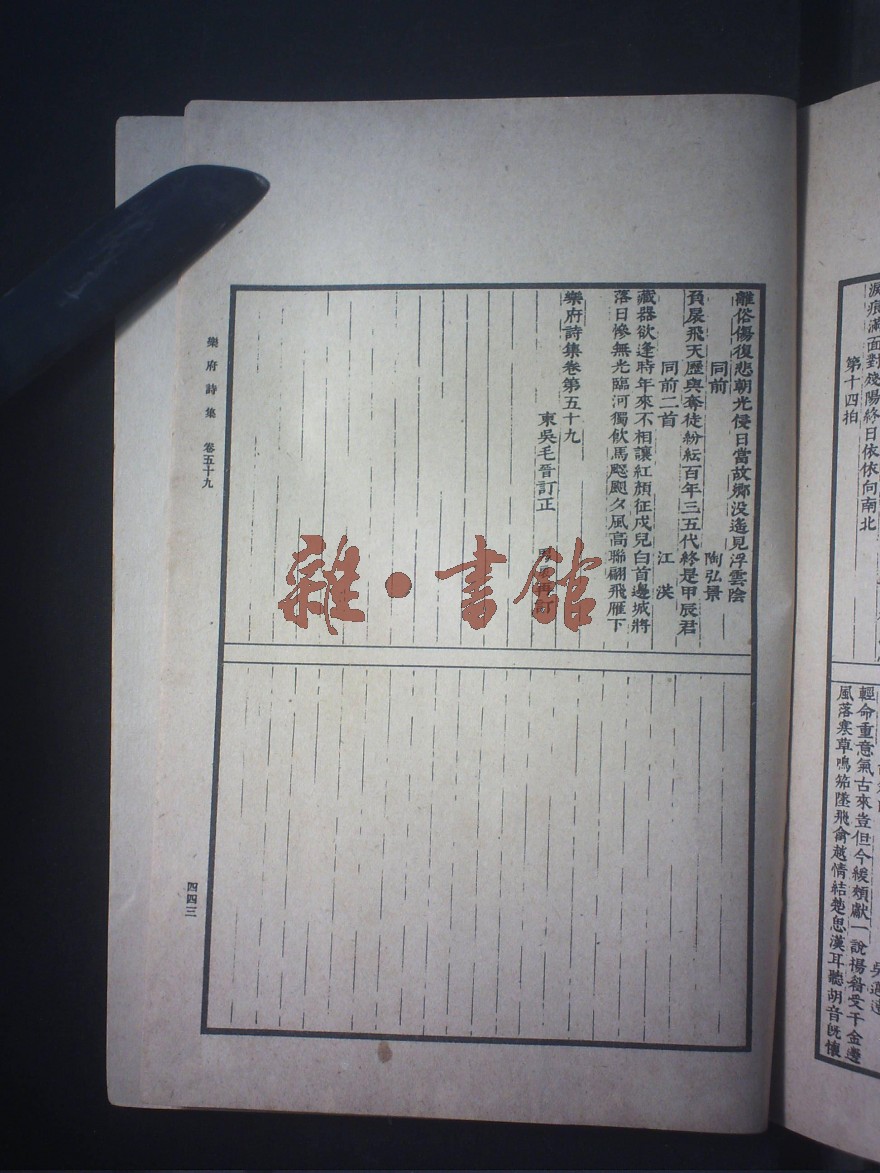 淚痕滿面對殘陽終日依依向南北
第十四拍
輕命重意氣古來豈但今緩頰獻一說揚眉受千金邊
風落寒草鳴笳墜飛禽越情結楚思漢耳聽胡音旣懷
離俗傷復悲朝光侵日當故鄉没遙見浮雲陰
同前 陶弘景
負扆飛天歷與奪徒紛紜百年三五代終是甲辰君
同前二首 江洪
藏器欲逢時年來不相讓紅顏征戍兒白首邊城將
落日慘無光臨河獨飲馬颼飀夕風高聯翩飛雁下
樂府詩集卷第五十九
東吳毛晉訂正 男 再訂
樂府詩集 卷五十九
四四三
雜·書館